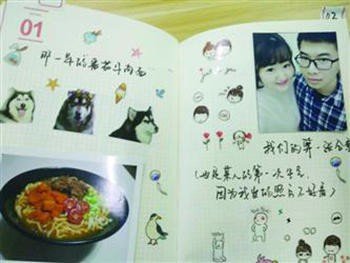 01
那一年的番茄牛肉面
02
just you
我们的第一张合影
(也是某人的第一次生气,
因为我当的照片不好看)